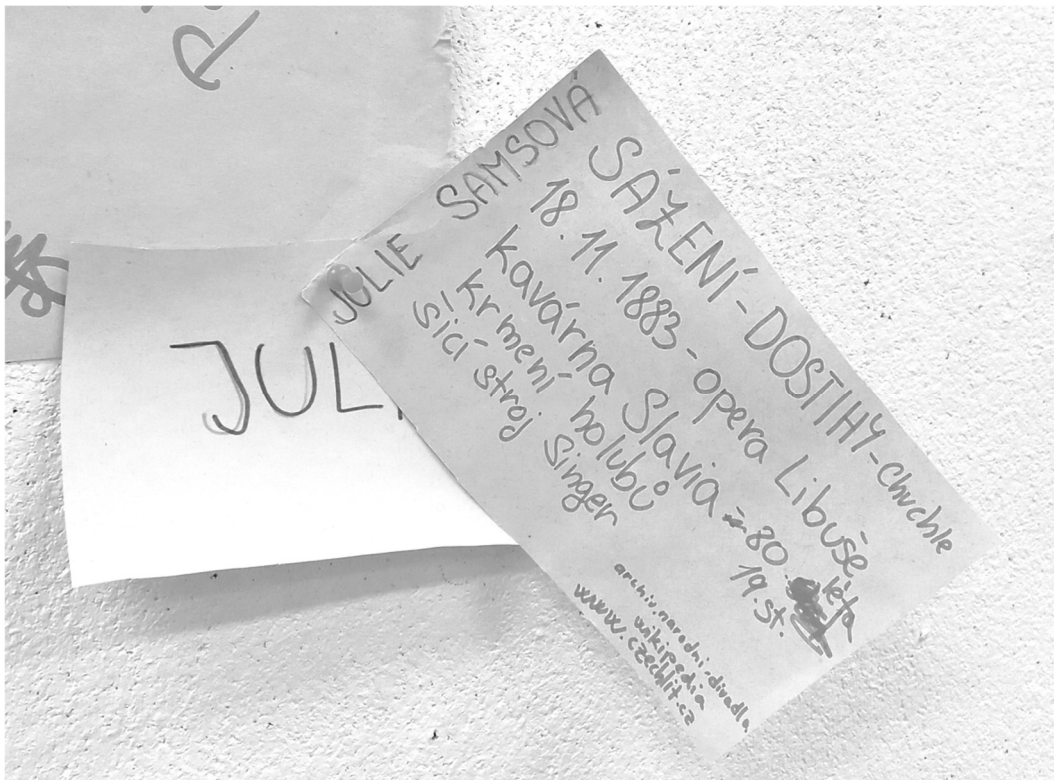 JULIE SAMSOVÁ
SÁZENÍ - DOSTIHY - chuchle
18. 11. 1883 - opera Libuše
kavárna Slavia - 80. léta
19 st.
krmení holubů
šicí stroj Singer
archiv.narodni-divadla
wikipedia
www.czechlit.cz
JULI